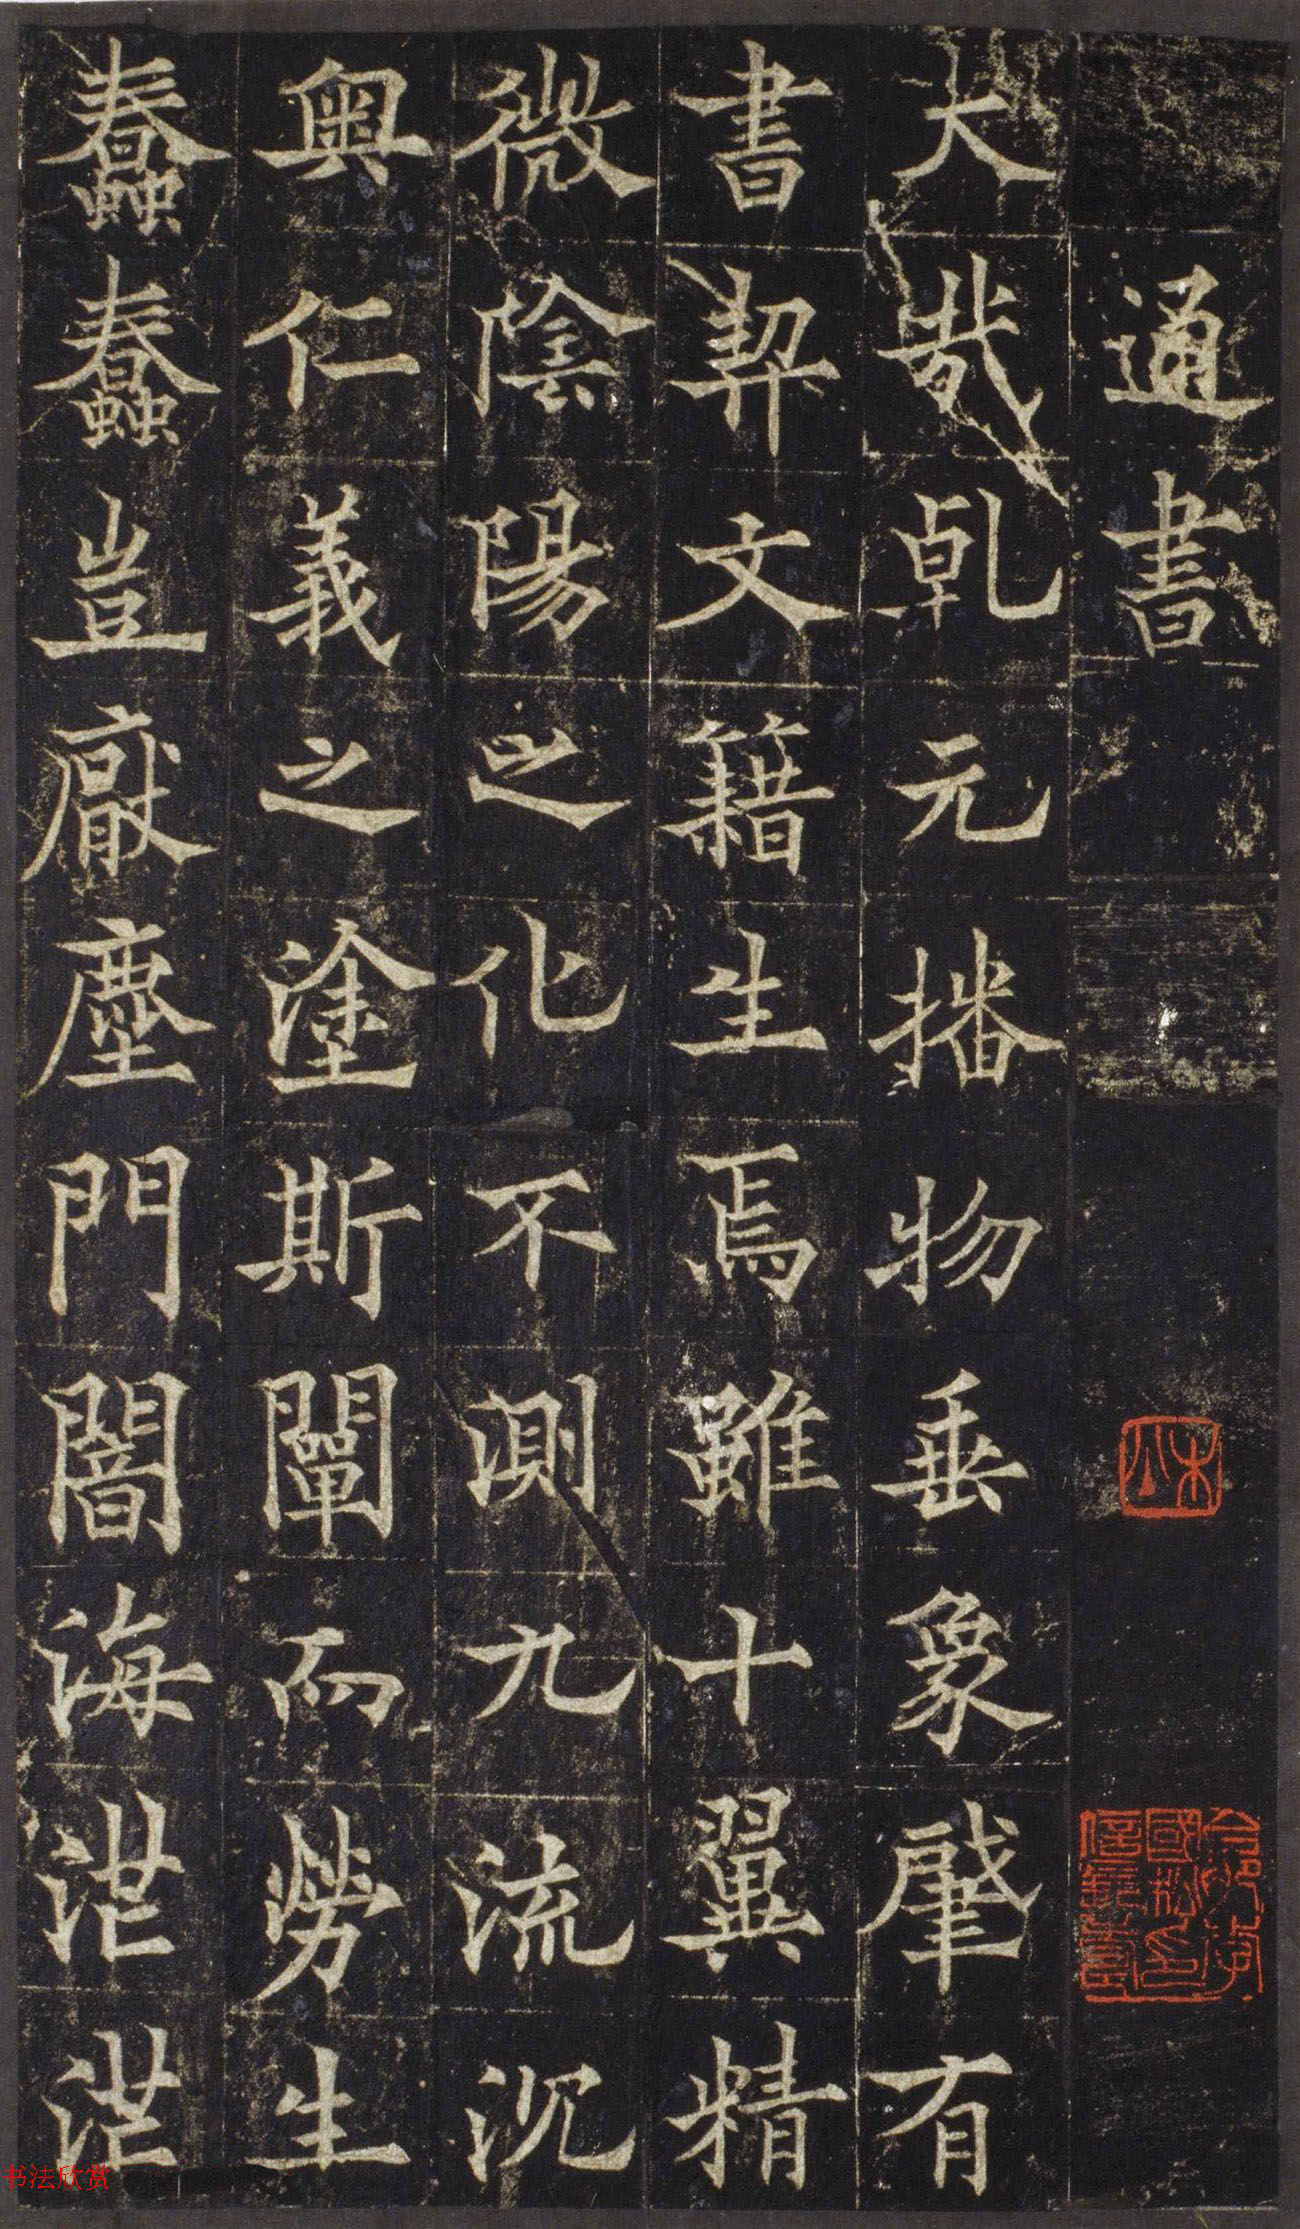 通書
大哉乹元播物垂象肈有
書契文籍生焉雖十翼精
微陰陽之化不測九流沉
奥仁義之塗斯闡而勞生
蠢蠢豈厭塵門闇海茫茫
书法欣赏